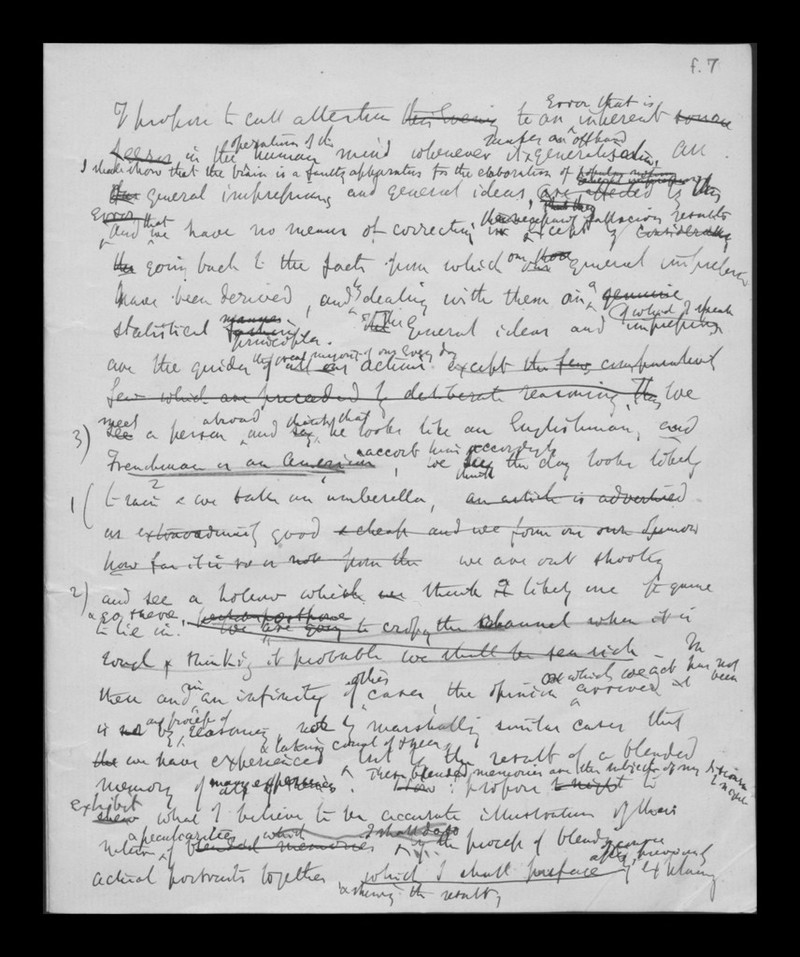 f. 7
Error that is
I propose to call attention this Evening to an inherent
operation of the makes an offhand
in the human mind whenever it generalises, an
I shall show that the brain is a faulty apparatus for the elaboration of
general impressions and general ideas, are affected by this
Error, that they fallacious results
and that we have no means of correcting except by considerably
the going back to the facts from which our general impressions
have been derived, and by dealing with them on a genuine
statistical manner principle. The General ideas and impressions of which I speak
the great majority of our Every day
are the guides of all our actions except the few comparatively
few which are preceded by deliberate reasoning. We
meet abroad think that
3) see a person and say he looks like an Englishman, and
accost him accordingly
Frenchman or an American, we think the day looks likely
1( to rain & we take an umbrella, an article is advertised
as extraordinarily good & cheap and we form our own opinion
how far it is so or not from the we are out shooting
2) and see a hollow which we think likely one for game
& go there,
to lie in. We are going to cross the channel when it is
rough & thinking it probable we shall be sea sick – In
in other which we act has not been
these and an infinity of cases, the opinion arrived at
any process of
is not by reasoning, not by marshalling similar cases that
& taking count of them
the we have experienced but by the result of a blended
memory of many experiences. These blended memories are the subject of my discourse to night
exhibit
I propose to night to
shew what I believe to be accurate illustrations of their
peculiarities, which I shall do
nature of blended memories by the process of blending some
after previously
actual portraits together which I shall preface by explaining
& shewing the results